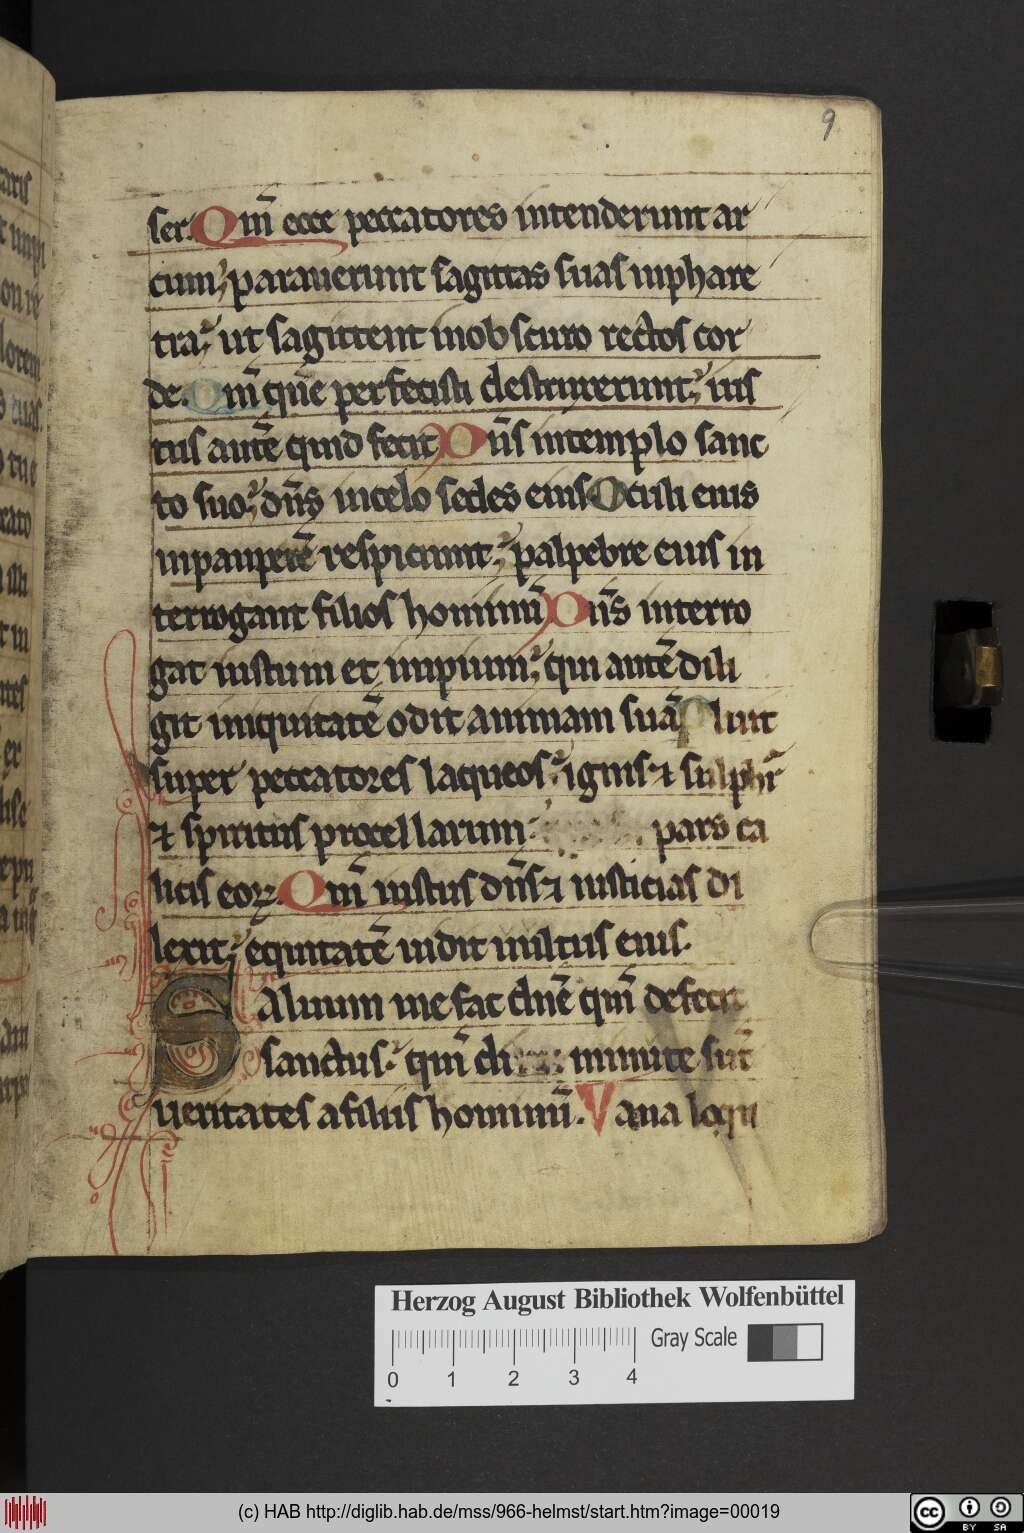 9
ser. Qm̄ ecce peccatores intenderunt ar
cum; parauerunt sagittas suas inphare
tra; ut sagittent inobscuro rectos cor
de. Qm̄ que perfecisti destruxerunt; ius
tus autē quid fecit Dn̄s intemplo sanc
to suo; dn̄s incelo sedes eius Oculi eius
inpauperē respiciunt; palpebre eius in
terrogant filios hominū Dn̄s interro
gat iustum et impium; qui autē dili
git iniquitatē odit animam suā Pluit
super peccatores laqueos; ignis ⁊ sulphr̄
⁊ spiritus procellarum pars ca
licis eoꝝ. Qm̄ iustus dn̄s ⁊ iusticias di
lexit; equitatē uidit uultus eius.
Saluum me fac dn̄e qm̄ defecit
sanctus; qm̄ di minute sūt
ueritates afiliis hominū. Vana loqu
Herzog August Bibliothek Wolfenbüttel
Gray Scale
0 1 2 3 4
(c) HAB http://diglib.hab.de/mss/966-helmst/start.htm?image=00019
cc BY SA